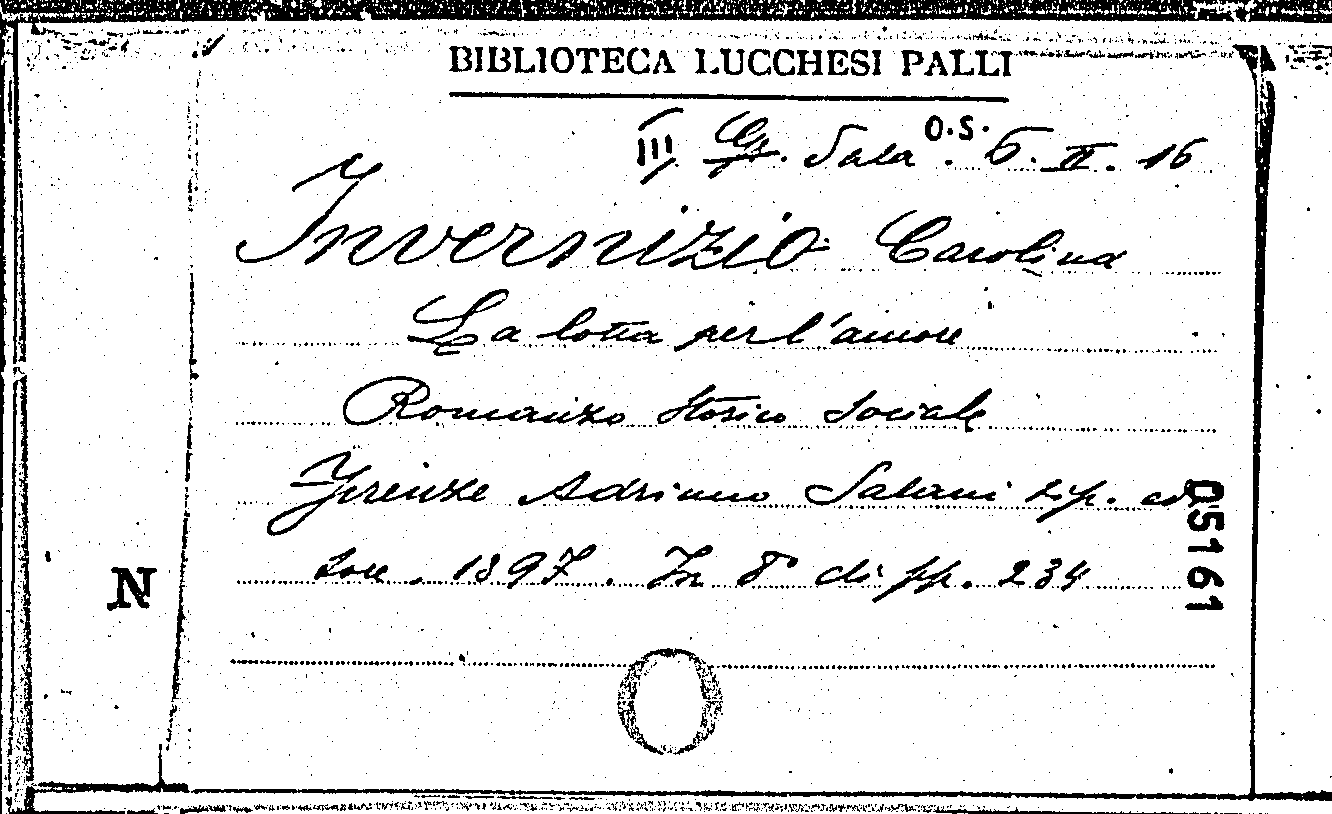 BIBLIOTECA LUCCHESI PALLI
III Gr. Sala O.S. 6. II. 16
Invernizio Carolina
La lotta per l'amore
Romanzo storico sociale
Firenze Adriano Salani tip. edi
tore. 1897. In 8° di pp. 234
N
05161